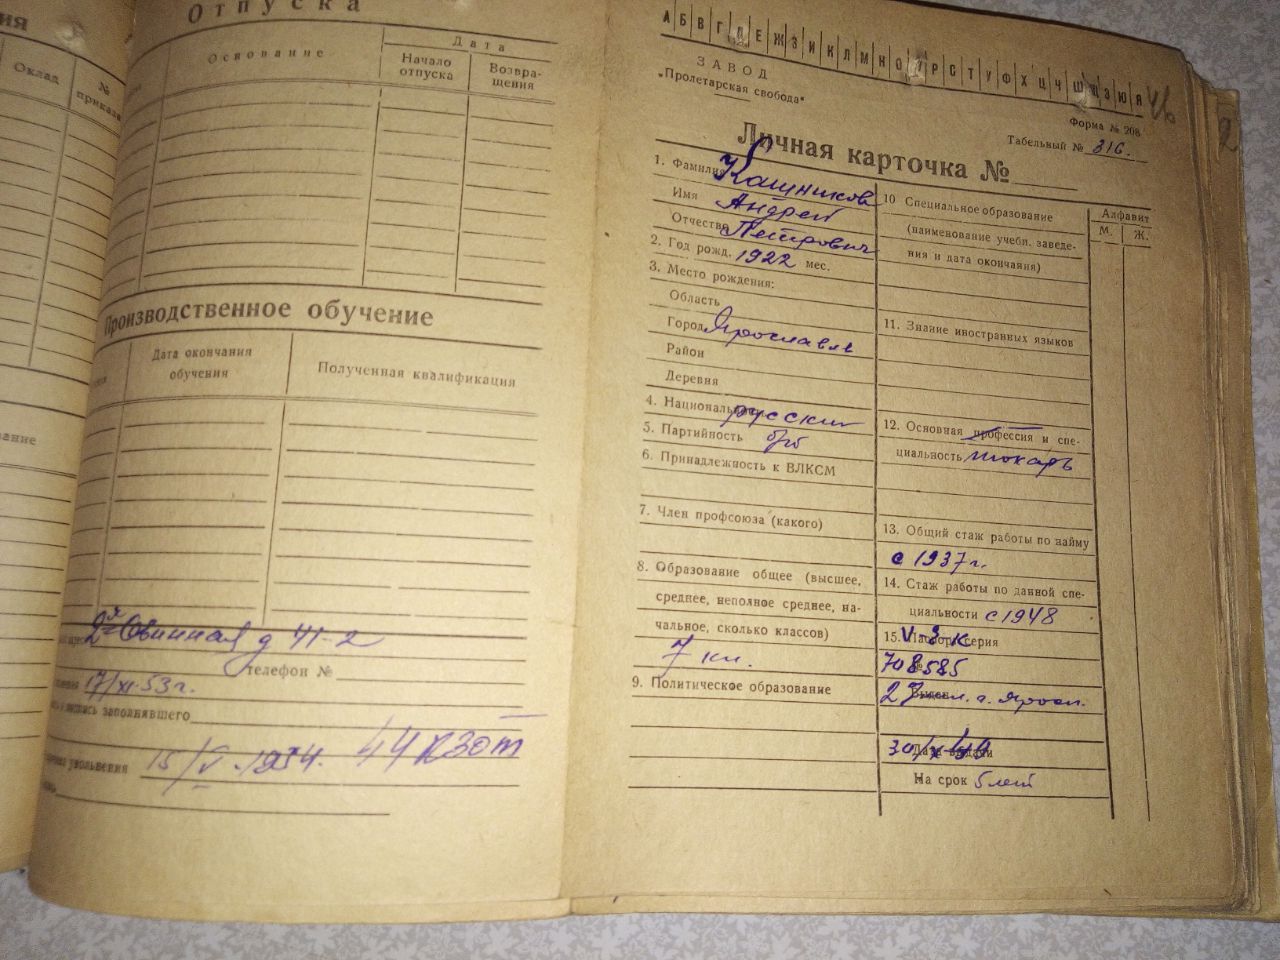 ия
Оклад
№
приказа
ание
Отпуска
Основание
Дата
Начало
отпуска
Возвра-
щения
Производственное обучение
Дата окончания
обучения
Полученная квалификация
2я Овинная д 41-2
телефон №
17/XI-53г.
заполнявшего
увольнения 15/V-1954. 44 КЗОТ
А Б В Г Д Е Ж З И К Л М Н О П Р С Т У Ф Х Ц Ч Ш Щ Э Ю Я
ЗАВОД
„Пролетарская свобода"
Форма № 208
Табельный № 316.
Личная карточка №
1. Фамилия
Имя Андрей
Отчество Петрович
2. Год рожд. 1922 мес.
3. Место рождения:
Область
Город Ярославль
Район
Деревня
4. Национальность русский
5. Партийность б/п
6. Принадлежность к ВЛКСМ
7. Член профсоюза (какого)
8. Образование общее (высшее,
среднее, неполное среднее, на-
чальное, сколько классов)
7 кл.
9. Политическое образование
10 Специальное образование
(наименование учебн. заведе-
ния и дата окончания)
11. Знание иностранных языков
12. Основная профессия и спе-
циальность токарь
13. Общий стаж работы по найму
с 1937 г.
14. Стаж работы по данной спе-
циальности с 1948
15. Паспорт серия V-З К
№ 708585
Выдан
Дата выдачи
На срок 5 лет
Алфавит
М. Ж.